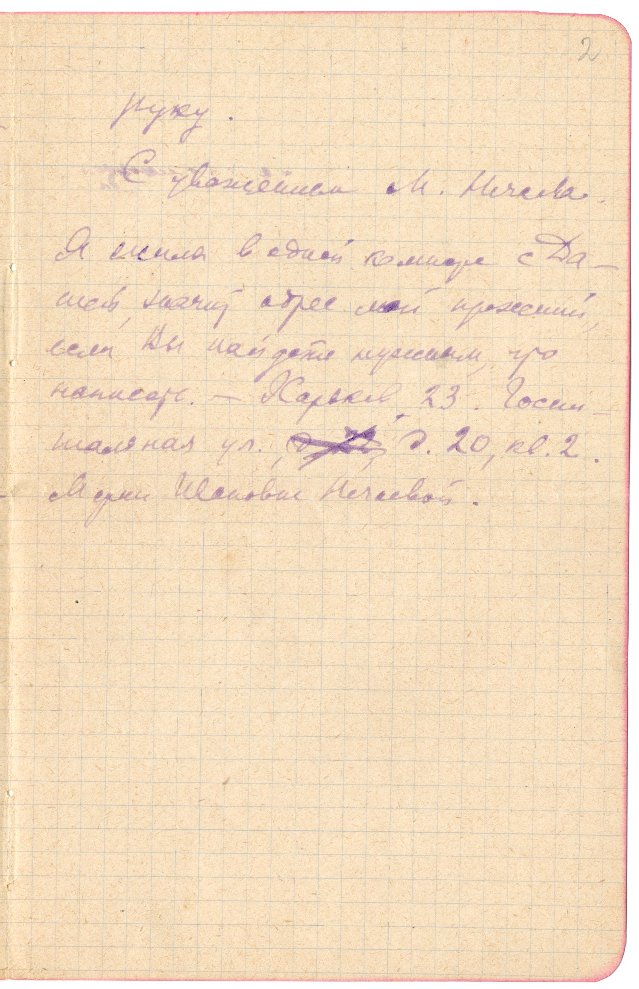 2
руку.
С уважением М. Нечаева.
Я жила в одной комнате с Да-
шей, значит адрес мой прежний,
если Вы найдете нужным, что
написать. — Харьков, 23. Госпи-
тальная ул., д. 20, кв. 2.
Марии Ивановне Нечаевой.